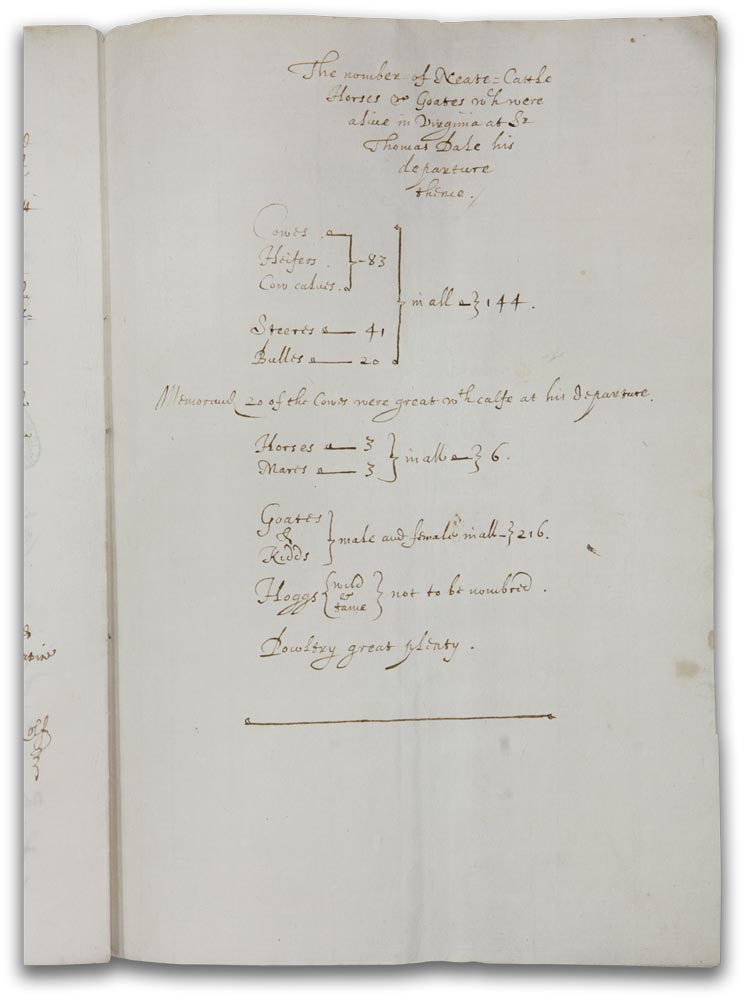 The nomber of Neate=Cattle
Horses & Goates wch were
aliue in Virginia at Sr
Thomas Dale his
departure
thence.
Cowes
Heifers
Cow calues.
83
Steeres 41
Bulles 20
in all 144.
Memorand 20 of the Cowes were great wth calfe at his departure.
Horses 3
Mares 3
in all 6.
Goates
&
Kidds
male and female in all 216.
Hoggs wild
&
tame
not to be nombred.
Powltry great plenty.